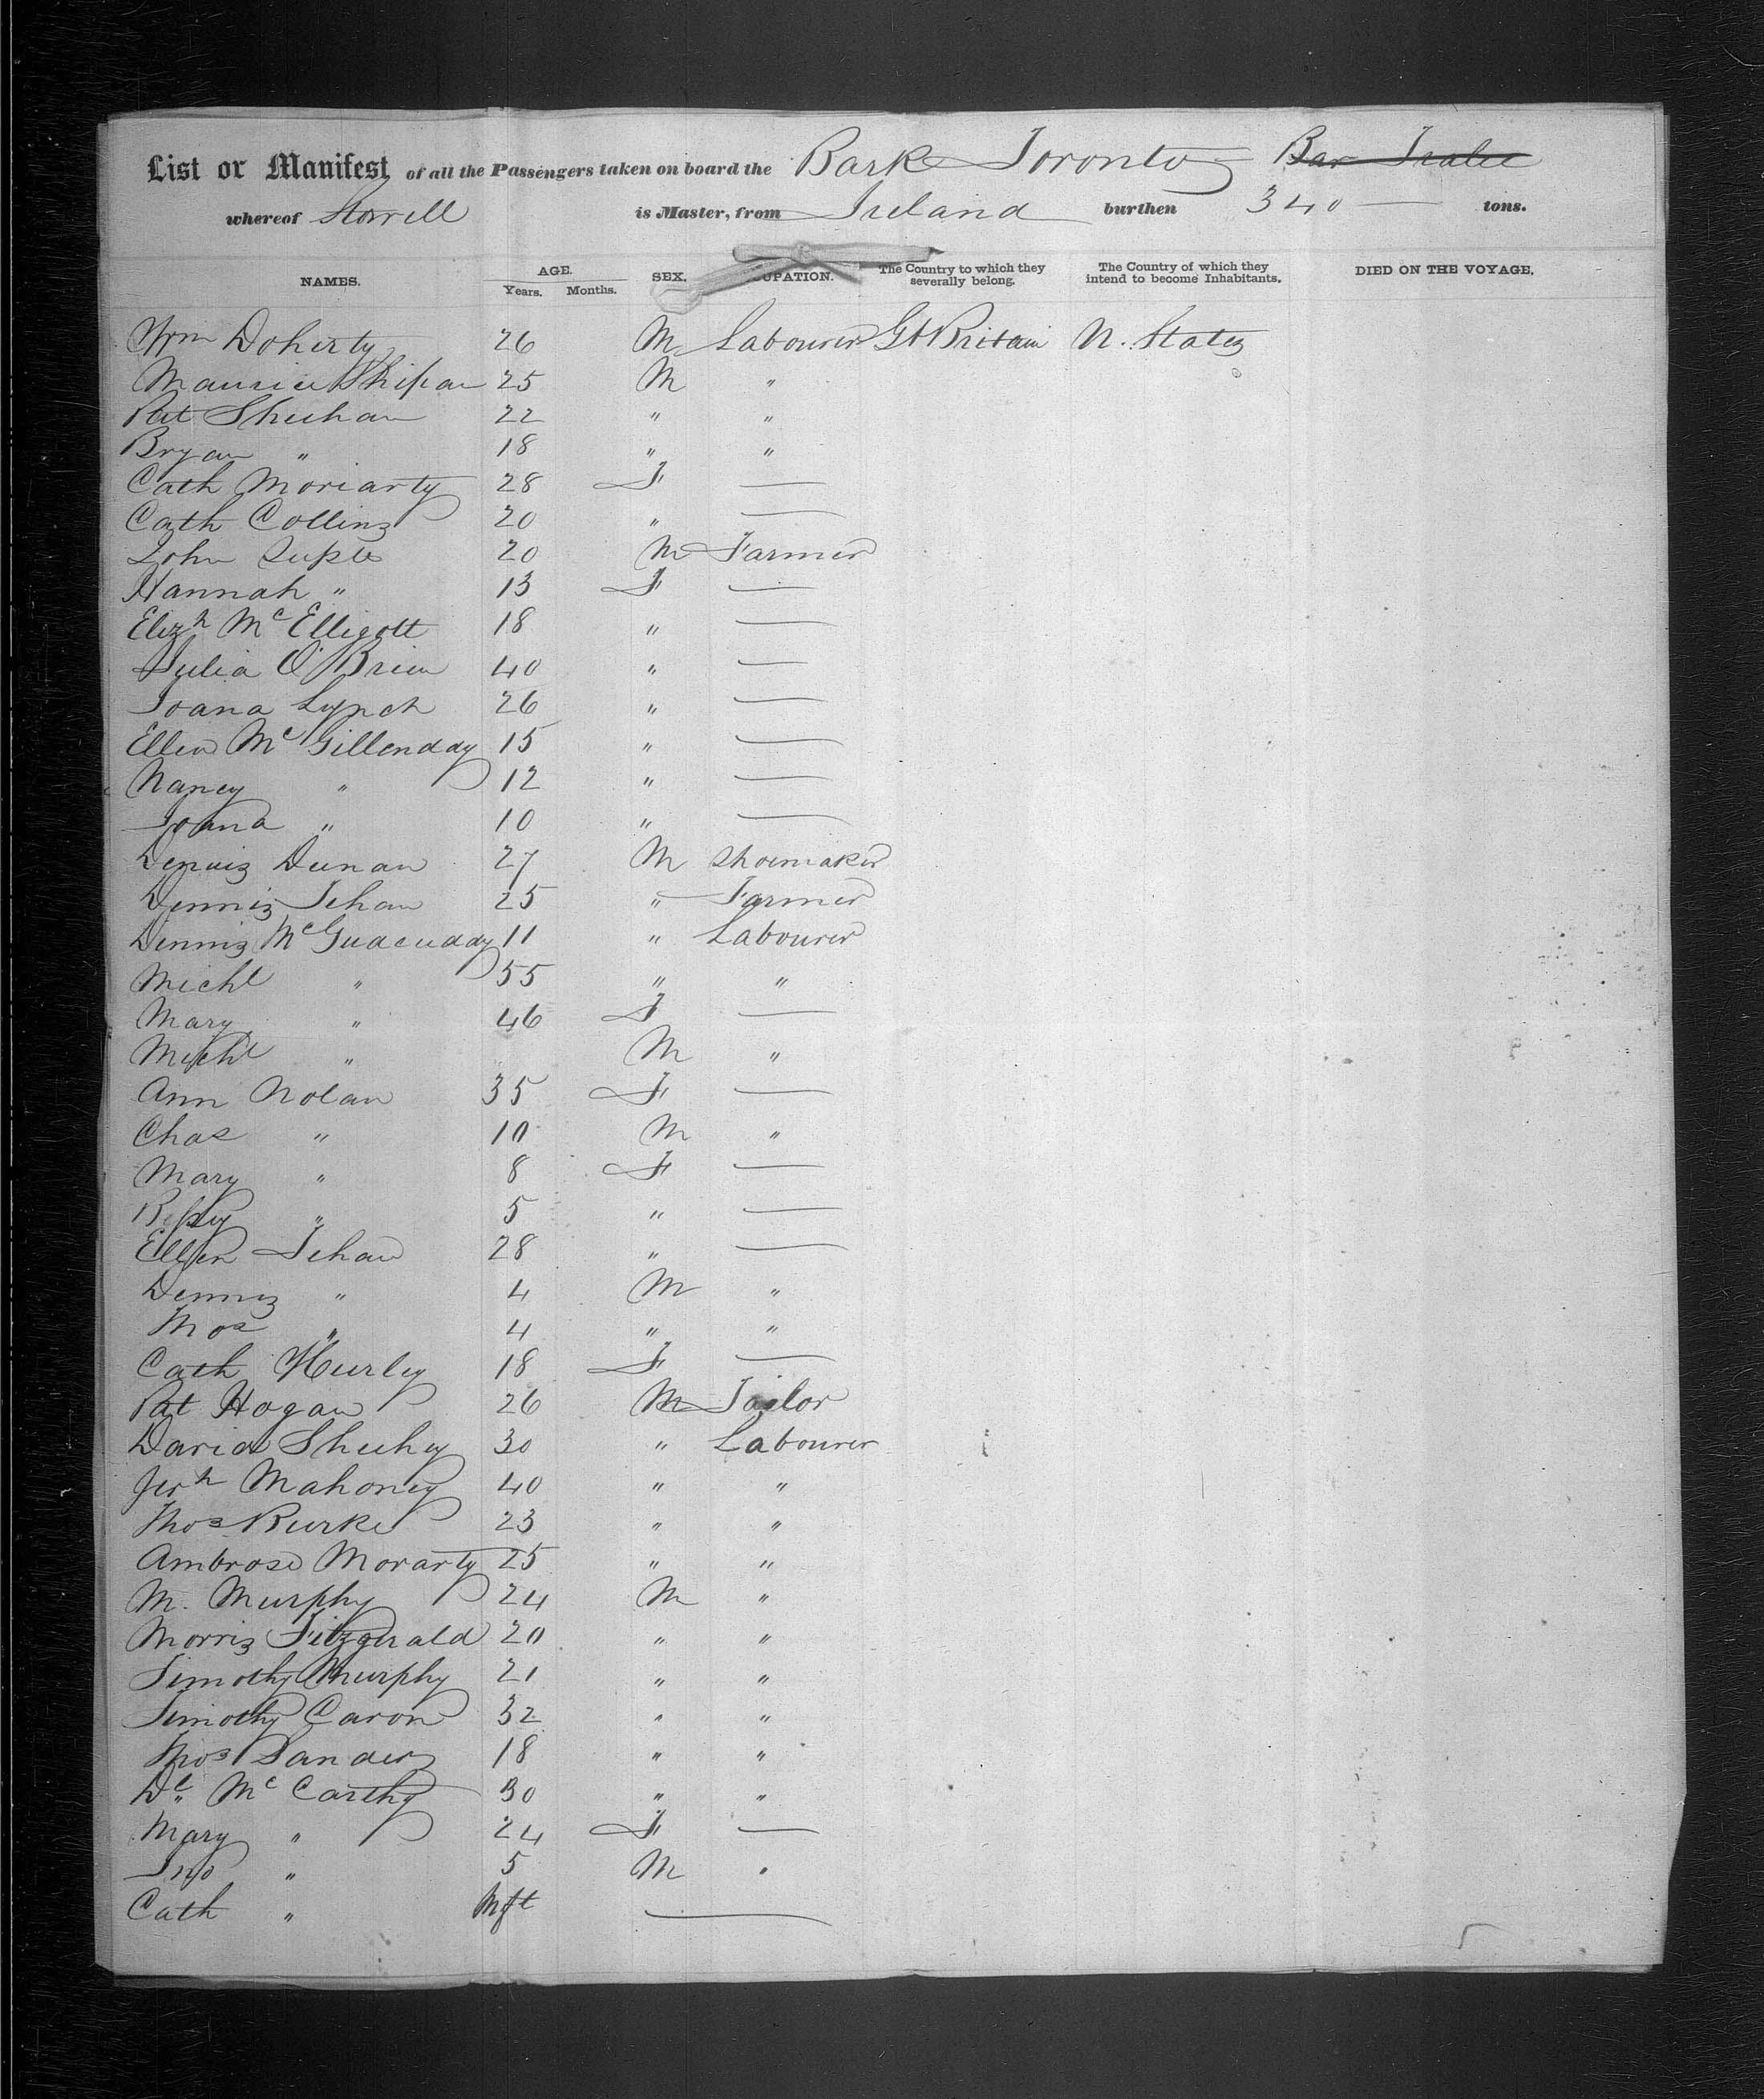 List or Manifest of all the Passengers taken on board the Bark Toronto Bar Tralee
whereof Storrell is Master, from Ireland burthen 340 tons.
NAMES. AGE. Years. Months. SEX. OCUPATION. The Country to which they severally belong. The Country of which they intend to become Inhabitants. DIED ON THE VOYAGE.
Wm Doherty 26 M Labourer Gt Britain U. States
Maurice 25 M "
Pat Sheehan 22 " "
Bryan " 18 " "
Cath Moriarty 28 F —
Cath Collins 20 " —
John Suple 20 M Farmer
Hannah " 13 F —
Elizh McElligott 18 " —
Julia O'Brien 40 " —
Joana Lynch 26 " —
Ellen McGillenddy 15 " —
Nancy " 12 " —
Joana " 10 " —
Dennis Dunan 27 M Shoemaker
Dennis Lehan 25 " Farmer
Dennis 11 " Labourer
Michl " 55 " "
Mary " 46 F —
Michl " M "
Ann Nolan 35 F —
Chas " 10 M "
Mary " 8 F —
Betsy " 5 " —
Ellen Lehan 28 " —
Dennis " 4 M "
Thos " 4 " "
Cath Hurley 18 F —
Pat Hogan 26 M Tailor
David Sheehy 30 " Labourer
Jerh Mahoney 40 " "
Thos Burke 23 " "
Ambrose Morarty 25 " "
M. Murphy 24 M "
Morris Fitzgerald 20 " "
Timothy Murphy 21 " "
Timothy Caron 32 " "
Thos Sanders 18 " "
Dl McCarthy 30 " "
Mary " 24 F —
Jno " 5 M "
Cath " Inft —